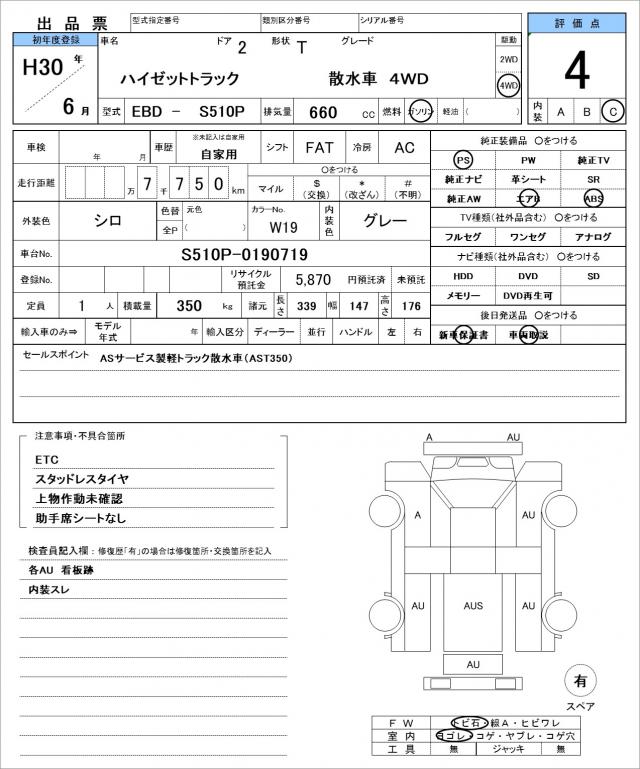 出品票 型式指定番号 類別区分番号 シリアル番号 評価点
初年度登録 車名 ドア 2 形状 T グレード 駆動
H30年 ハイゼットトラック 散水車 4WD 2WD 4
6月 4WD
型式 EBD － S510P 排気量 660 CC 燃料 ガソリン 軽油 ( ) 内装 A B C
車検 年 月 車歴 ※未記入は自家用 自家用 シフト FAT 冷房 AC
走行距離 万 7 千 7 5 0 km マイル ○をつける $ (交換) * (改ざん) # (不明)
外装色 シロ 色替 元色 全P ( ) カラーNo. W19 内装色 グレー
車台No. S510P-0190719
登録No. リサイクル預託金 5,870 円預託済 未預託
定員 1 人 積載量 350 kg 諸元 長さ 339 幅 147 高さ 176
輸入車のみ⇒ モデル年式 年 輸入区分 ディーラー 並行 ハンドル 左 右
純正装備品 ○をつける
PS PW 純正TV
純正ナビ 革シート SR
純正AW エアB ABS
TV種類(社外品含む) ○をつける
フルセグ ワンセグ アナログ
ナビ種類(社外品含む) ○をつける
HDD DVD SD
メモリー DVD再生可
後日発送品 ○をつける
新車保証書 車両取説
セールスポイント ASサービス製軽トラック散水車(AST350)
注意事項・不具合箇所
ETC
スタッドレスタイヤ
上物作動未確認
助手席シートなし
検査員記入欄：修復歴「有」の場合は修復箇所・交換箇所を記入
各AU 看板跡
内装スレ
A AU
A AU
AU AUS AU
AU
有
スペア
FW トビ石・線A・ヒビワレ
室内 ヨゴレ・コゲ・ヤブレ・コゲ穴
工具 無 ジャッキ 無